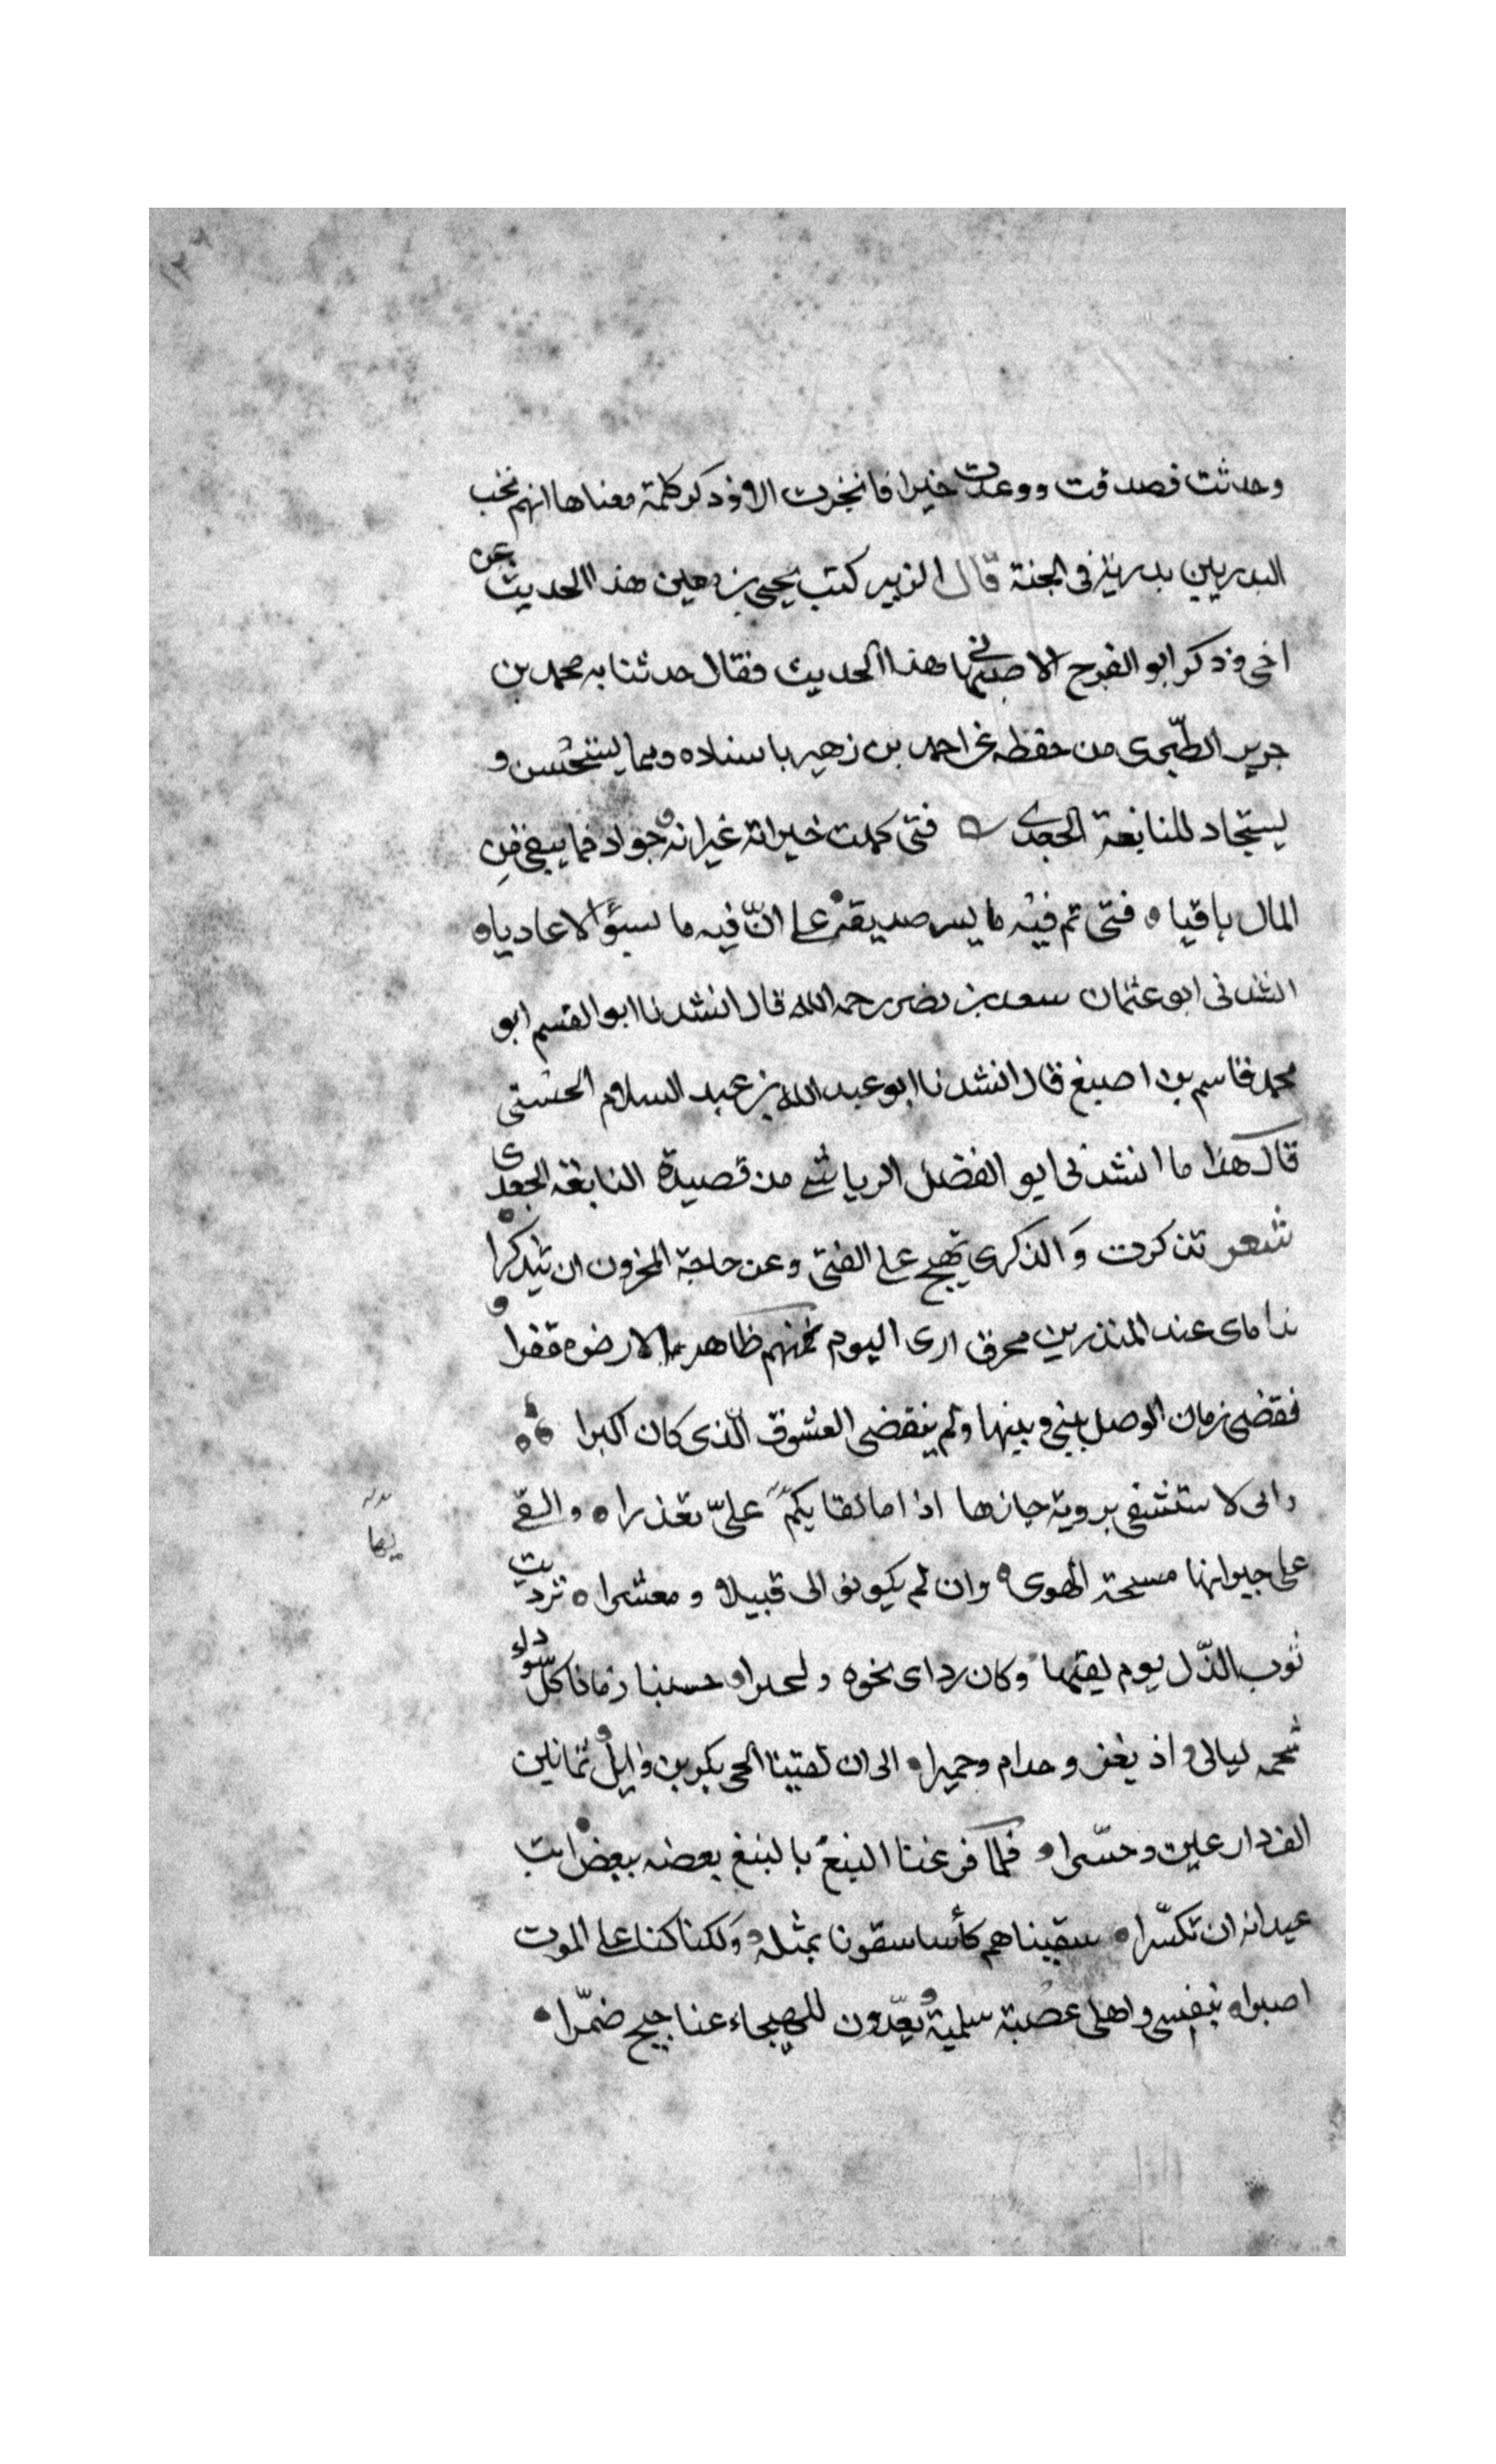 وحدثت فصدقت ووعدت خيرا فانجزت الا وذكر كلمة معناها انهم تحب
البدريين بدريين فى الجنة قال الزبير كتب يحيى بن معين هذا الحديث عن
اخى وذكر ابو الفرج الاصبهانى هذا الحديث فقال حدثنا به محمد بن
جرير الطبرى من حفظه عن احمد بن زهير باسناده ومما يستحسن و
يستجاد للنابغة الجعدى فتى كملت خيراته غير انه جواد فما يبقى من
المال باقيا ه فتى تم فيه ما يسر صديقه على انّ فيه ما يسؤ الاعاديا ه
انشدنى ابو عثمان سعد بن نصر رحمه الله قال انشدنا ابو القسم ابو
محمد قاسم بن اصبغ قال انشدنا ابو عبد الله بن عبد السلام الخشنى
قال هذا ما انشدنى ابو الفضل الرياشى من قصيدة النابغه الجعدى
شعر تذكرت وَالذكرى تهيج على الفتى وعن حاجة المحزون ان يتذكرا
نداماى عند المنذر بن محرق ارى اليوم منهم ظاهر الارض مقفرا
فقضى زمان الوصل بينى وبينها ولم ينقضى الشوق الّذى كان اكبرا
وانى لاستشفى بروية جارها اذا ما لقايكم علىّ تعذرا ه والقى
على جيرانها مسحة الهوى ه وان لم يكونو الى قبيلا ومعشرا ه ترديت
ثوب الذّل يوم لقيتها وكان رداى نخوه حسبنا زمانا كل سوداء
شحمه ليالى اذ يغز وحدام وحميرا ه الى ان لقينا الحى بكر بن وايل ثمانين
الف دارعين وحسّرا ه فلما قرعنا النبع بالنبع بعضه ببعض ابت
عيدانه ان تكسّرا ه سقيناهم كأسا سقونا بمثله وَلكنا كنا على الموت
اصبرا ه بنفسى واهلى عصبة سلمية يعدّون للهيجاء عناجيج ضمّرا ه